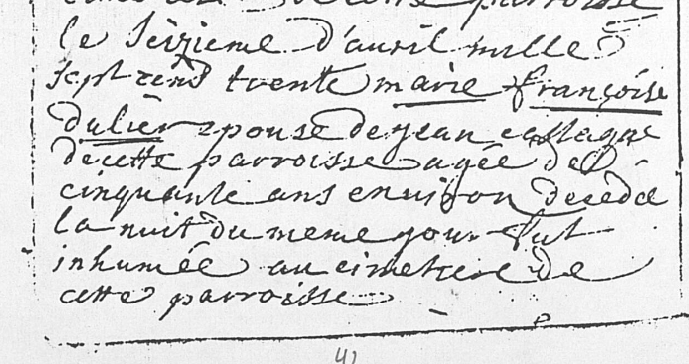 cette parroisse
le seizieme d'auril mille
sept cens trente marie françoise
dulier epouse de jean castaque
de cette parroisse agée de
cinquante ans enuiron decedée
la nuit du meme jour fut
inhumée au cimetiere de
cette parroisse
41